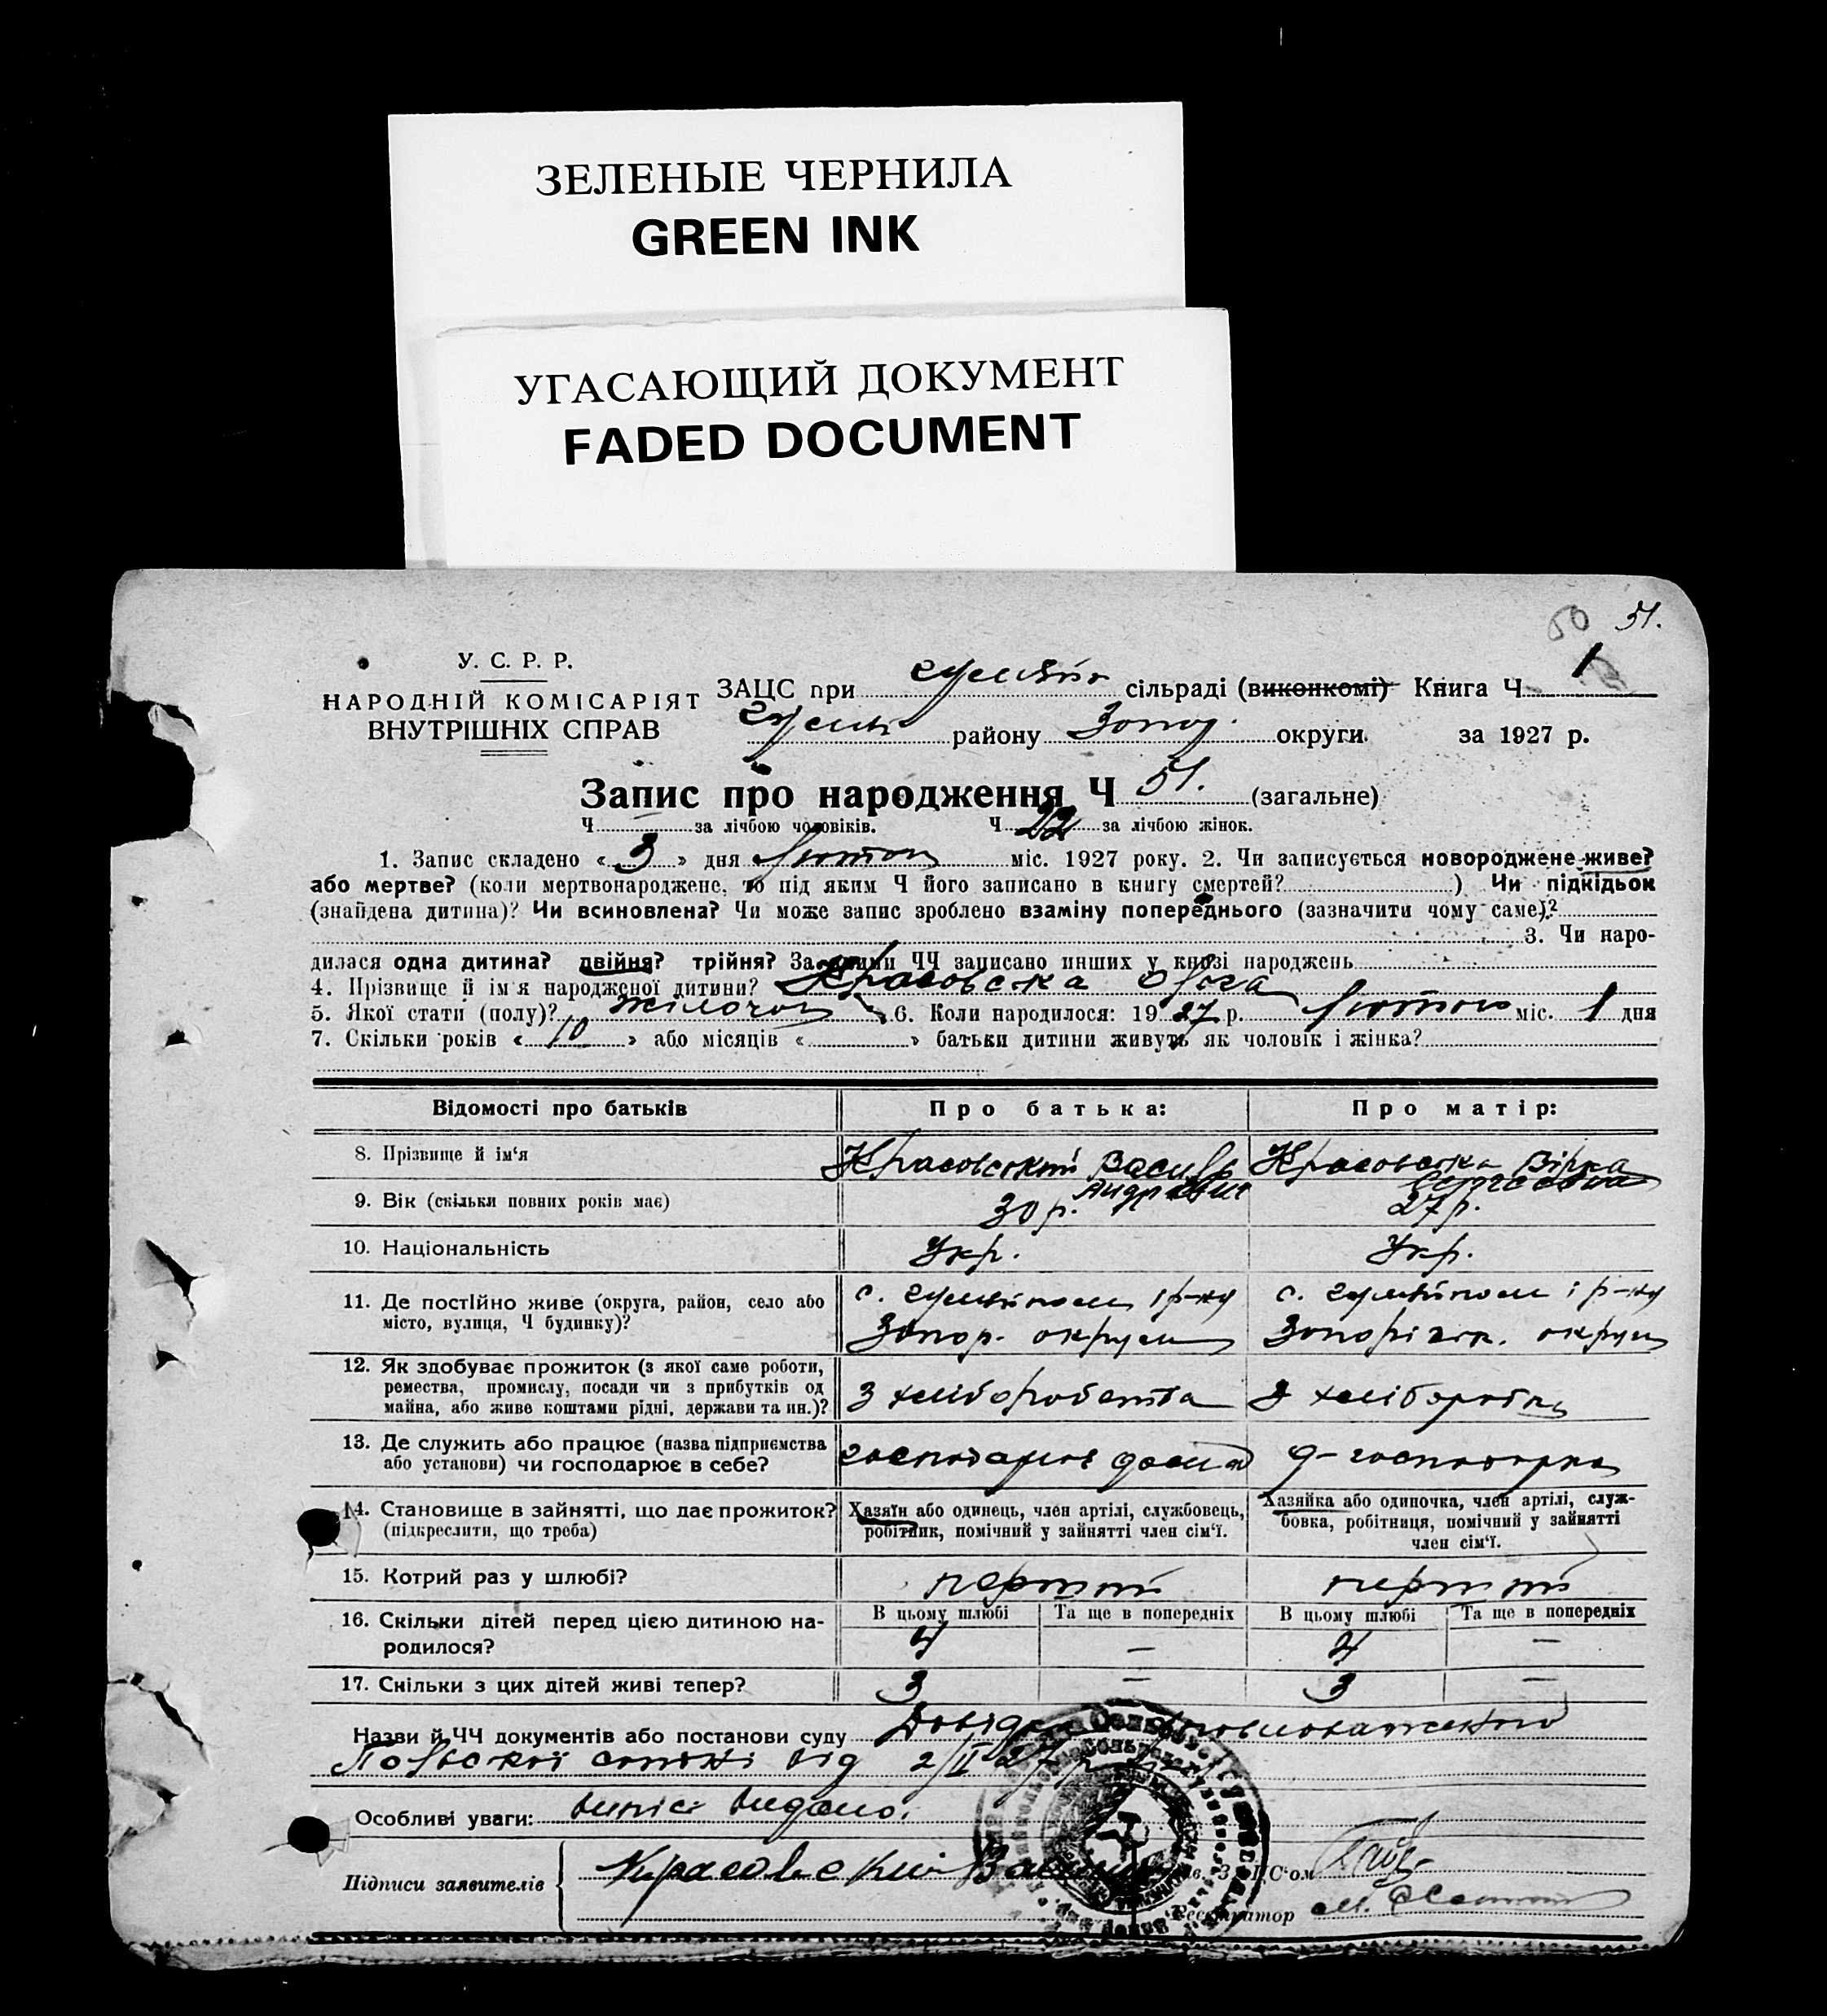 ЗЕЛЕНЫЕ ЧЕРНИЛА
GREEN INK
УГАСАЮЩИЙ ДОКУМЕНТ
FADED DOCUMENT
50 51.
У. С. Р. Р.
НАРОДНІЙ КОМІСАРІЯТ
ВНУТРІШНІХ СПРАВ
ЗАЦС при сільраді (виконкомі) Книга Ч 1
району Запор. округи. за 1927 р.
Запис про народження Ч 51. (загальне)
Ч за лічбою чоловіків. Ч 22 за лічбою жінок.
1. Запис складено « 3 » дня Лютого міс. 1927 року. 2. Чи записується новороджене живе?
або мертве? (коли мертвонароджене, то під яким Ч його записано в книгу смертей? ) Чи підкідьок
(знайдена дитина)? Чи всиновлена? Чи може запис зроблено взаміну попереднього (зазначити чому саме)?
3. Чи наро-
дилася одна дитина? двійня? трійня? За якими ЧЧ записано инших у книзі народжень
4. Прізвище й ім'я народженої дитини? Красовська Ольга
5. Якої стати (полу)? Жіночої 6. Коли народилося: 19 27 р. Лютого міс. 1 дня
7. Скільки років « 10 » або місяців « » батьки дитини живуть як чоловік і жінка?
Відомості про батьків Про батька: Про матір:
8. Прізвище й ім'я Красовський Василь Андрієвич Красовська Вірка Сергієвна
9. Вік (скільки повних років має) 30 р. 27 р.
10. Національність Укр. Укр.
11. Де постійно живе (округа, район, село або
місто, вулиця, Ч будинку)? с. Гуляйполе і р-ну Запор. округи с. Гуляйполе і р-ну Запоріжж. округи
12. Як здобуває прожиток (з якої саме роботи,
ремества, промислу, посади чи з прибутків од
майна, або живе коштами рідні, держави та ин.)? З хліборобства З хліборобст
13. Де служить або працює (назва підприємства
або установи) чи господарює в себе? господарює дома д-господарка
14. Становище в зайнятті, що дає прожиток?
(підкреслити, що треба)
Хазяїн або одинець, член артілі, службовець,
робітник, помічний у зайнятті член сім'ї.
Хазяйка або одиночка, член артілі, служ-
бовка, робітниця, помічний у зайнятті
член сім'ї.
15. Котрий раз у шлюбі? перший перший
В цьому шлюбі Та ще в попередніх В цьому шлюбі Та ще в попередніх
16. Скільки дітей перед цією дитиною на-
родилося? 4 — 4 —
17. Скільки з цих дітей живі тепер? 3 — 3 —
Назви й ЧЧ документів або постанови суду Довідка уповноваженого
Польської сотні від 2/II 27 р.
Особливі уваги: випісь видано.
Підписи заявителів Красовский Василий
Реєстратор